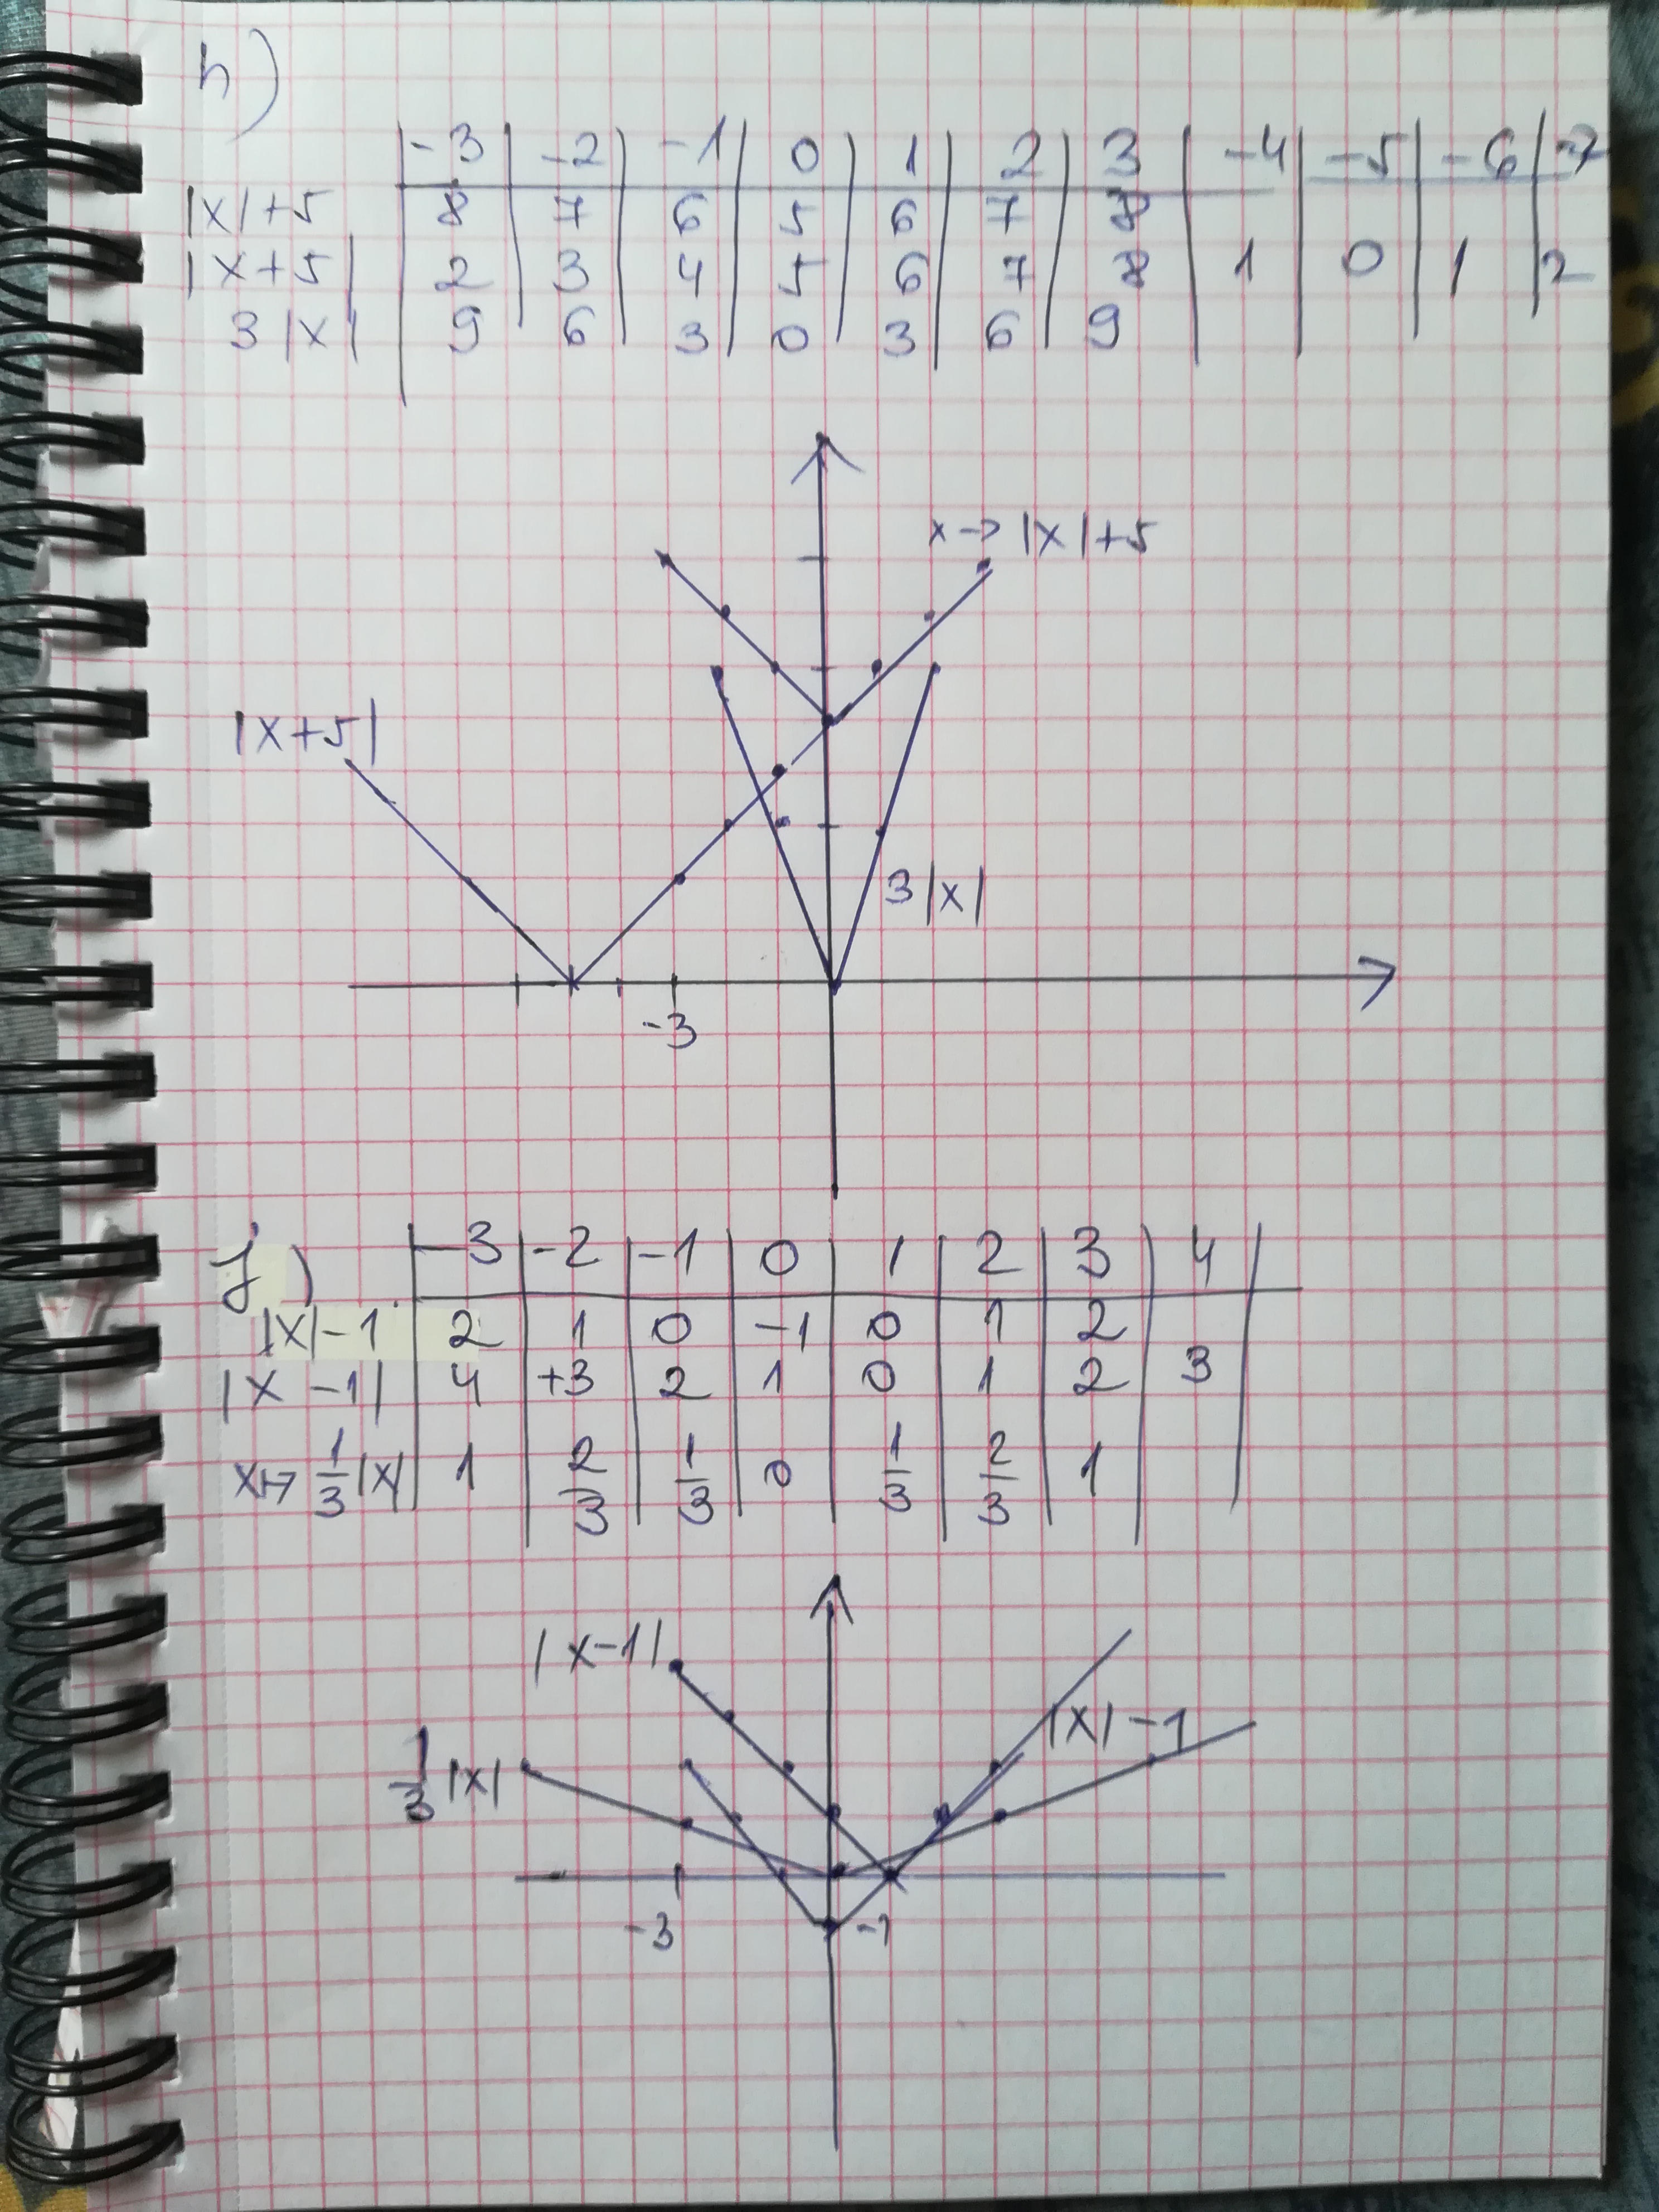 h)
-3 | -2 | -1 | 0 | 1 | 2 | 3 | -4 | -5 | -6 | -7
|x|+5 | 8 | 7 | 6 | 5 | 6 | 7 | 8
|x+5| | 2 | 3 | 4 | 5 | 6 | 7 | 8 | 1 | 0 | 1 | 2
3|x| | 9 | 6 | 3 | 0 | 3 | 6 | 9
x→ |x|+5
|x+5|
3|x|
-3
j) | -3 | -2 | -1 | 0 | 1 | 2 | 3 | 4
|x|-1 | 2 | 1 | 0 | -1 | 0 | 1 | 2
|x -1| | 4 | +3 | 2 | 1 | 0 | 1 | 2 | 3
x↦ 1/3|x| | 1 | 2/3 | 1/3 | 0 | 1/3 | 2/3 | 1
|x-1|
|x|-1
1/3|x|
-3 -1